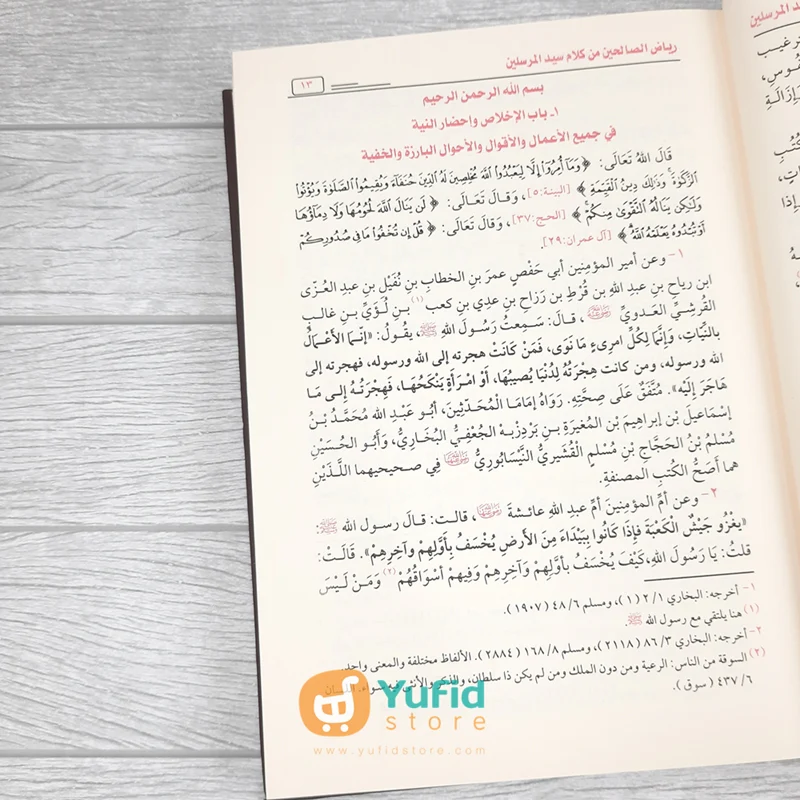 رياض الصالحين من كلام سيد المرسلين
١٣
بسم الله الرحمن الرحيم
١ـ باب الإخلاص وإحضار النية
في جميع الأعمال والأقوال والأحوال البارزة والخفية
قَالَ اللهُ تَعَالَى: ﴿وَمَا أُمِرُوا إِلَّا لِيَعْبُدُوا اللَّهَ مُخْلِصِينَ لَهُ الدِّينَ حُنَفَاءَ وَيُقِيمُوا الصَّلَاةَ وَيُؤْتُوا
الزَّكَاةَ وَذَلِكَ دِينُ الْقَيِّمَةِ﴾ [البينة:٥]، وَقَالَ تَعَالَى: ﴿لَن يَنَالَ اللَّهَ لُحُومُهَا وَلَا دِمَاؤُهَا
وَلَٰكِن يَنَالُهُ التَّقْوَىٰ مِنكُمْ﴾ [الحج:٣٧]، وَقَالَ تَعَالَى: ﴿قُلْ إِن تُخْفُوا مَا فِي صُدُورِكُمْ
أَوْ تُبْدُوهُ يَعْلَمْهُ اللَّهُ﴾ [آل عمران:٢٩].
١ – وعن أمير المؤمنين أبي حَفْصٍ عمرَ بنِ الخطابِ بنِ نُفَيْل بنِ عبدِ العُزّى
ابن رياحِ بنِ عبدِ اللهِ بن قُرْطِ بن رَزاحِ بن عدِي بنِ كعب(١) بنِ لُؤَيِّ بنِ غالبٍ
القُرشِيِّ العدويِّ رضي الله عنه، قال: سَمِعتُ رَسُولَ اللهِ ﷺ، يقُولُ: «إنّما الأَعْمَالُ
بالنِّيّاتِ، وَإِنَّمَا لِكُلِّ امرِىءٍ مَا نَوَى، فَمَنْ كَانَتْ هجرته إلى الله ورسوله، فهجرته إلى
الله ورسوله، ومن كانت هِجْرَتُهُ لِدُنْيَا يُصيبُهَا، أَوْ امْرَأَةٍ يَنْكَحُهَا، فَهِجْرَتُهُ إلى مَا
هَاجَرَ إِلَيْه». مُتَّفَقٌ عَلَى صِحَّتِهِ. رَوَاهُ إمَامَا الْمُحَدّثِينَ، أبُو عَبْدِ الله مُحَمَّدُ بْنُ
إسْمَاعيلَ بْن إبراهِيمَ بْن المُغيرَةِ بنِ بَرْدِزبهْ الجُعْفِيُّ البُخَارِيُّ، وَأَبُو الحُسَيْنِ
مُسْلمُ بْنُ الحَجَّاجِ بْنِ مُسْلمٍ الْقُشَيريُّ النَّيْسَابُوريُّ رضي الله عنهما فِي صحيحيهما اللَّذَيْنِ
هما أَصَحُّ الكُتبِ المصنفةِ.
٢ – وعن أمِّ المؤمِنينَ أمِّ عبدِ اللهِ عائشةَ رضي الله عنها، قالت: قالَ رسول الله ﷺ:
«يغْزُو جَيْشٌ الْكَعْبَةَ فإِذَا كَانُوا بِبَيْدَاءَ مِنَ الأَرضِ يُخْسَفُ بِأَوَّلِهِمْ وآخِرِهِمْ». قَالَتْ:
قلتُ: يَا رَسُولَ اللهِ، كَيْفَ يُخْسَفُ بأوَّلِهِمْ وَآخِرِهِمْ وَفِيهِمْ أسْوَاقُهُمْ(٢) وَمَنْ لَيْسَ
١ – أخرجه: البخاري ٢/١ (١)، ومسلم ٤٨/٦ (١٩٠٧).
(١) هنا يلتقي مع رسول الله ﷺ.
٢– أخرجه: البخاري ٨٦/٣ (٢١١٨)، ومسلم ١٦٨/٨ (٢٨٨٤). الألفاظ مختلفة والمعنى واحد.
(٢) السوقة من الناس: الرعية ومن دون الملك ومن لم يكن ذا سلطان، والذكر والأنثى فيه سواء. اللسان
٤٣٧/٦ (سوق).
Yufid
store
www.yufidstore.com